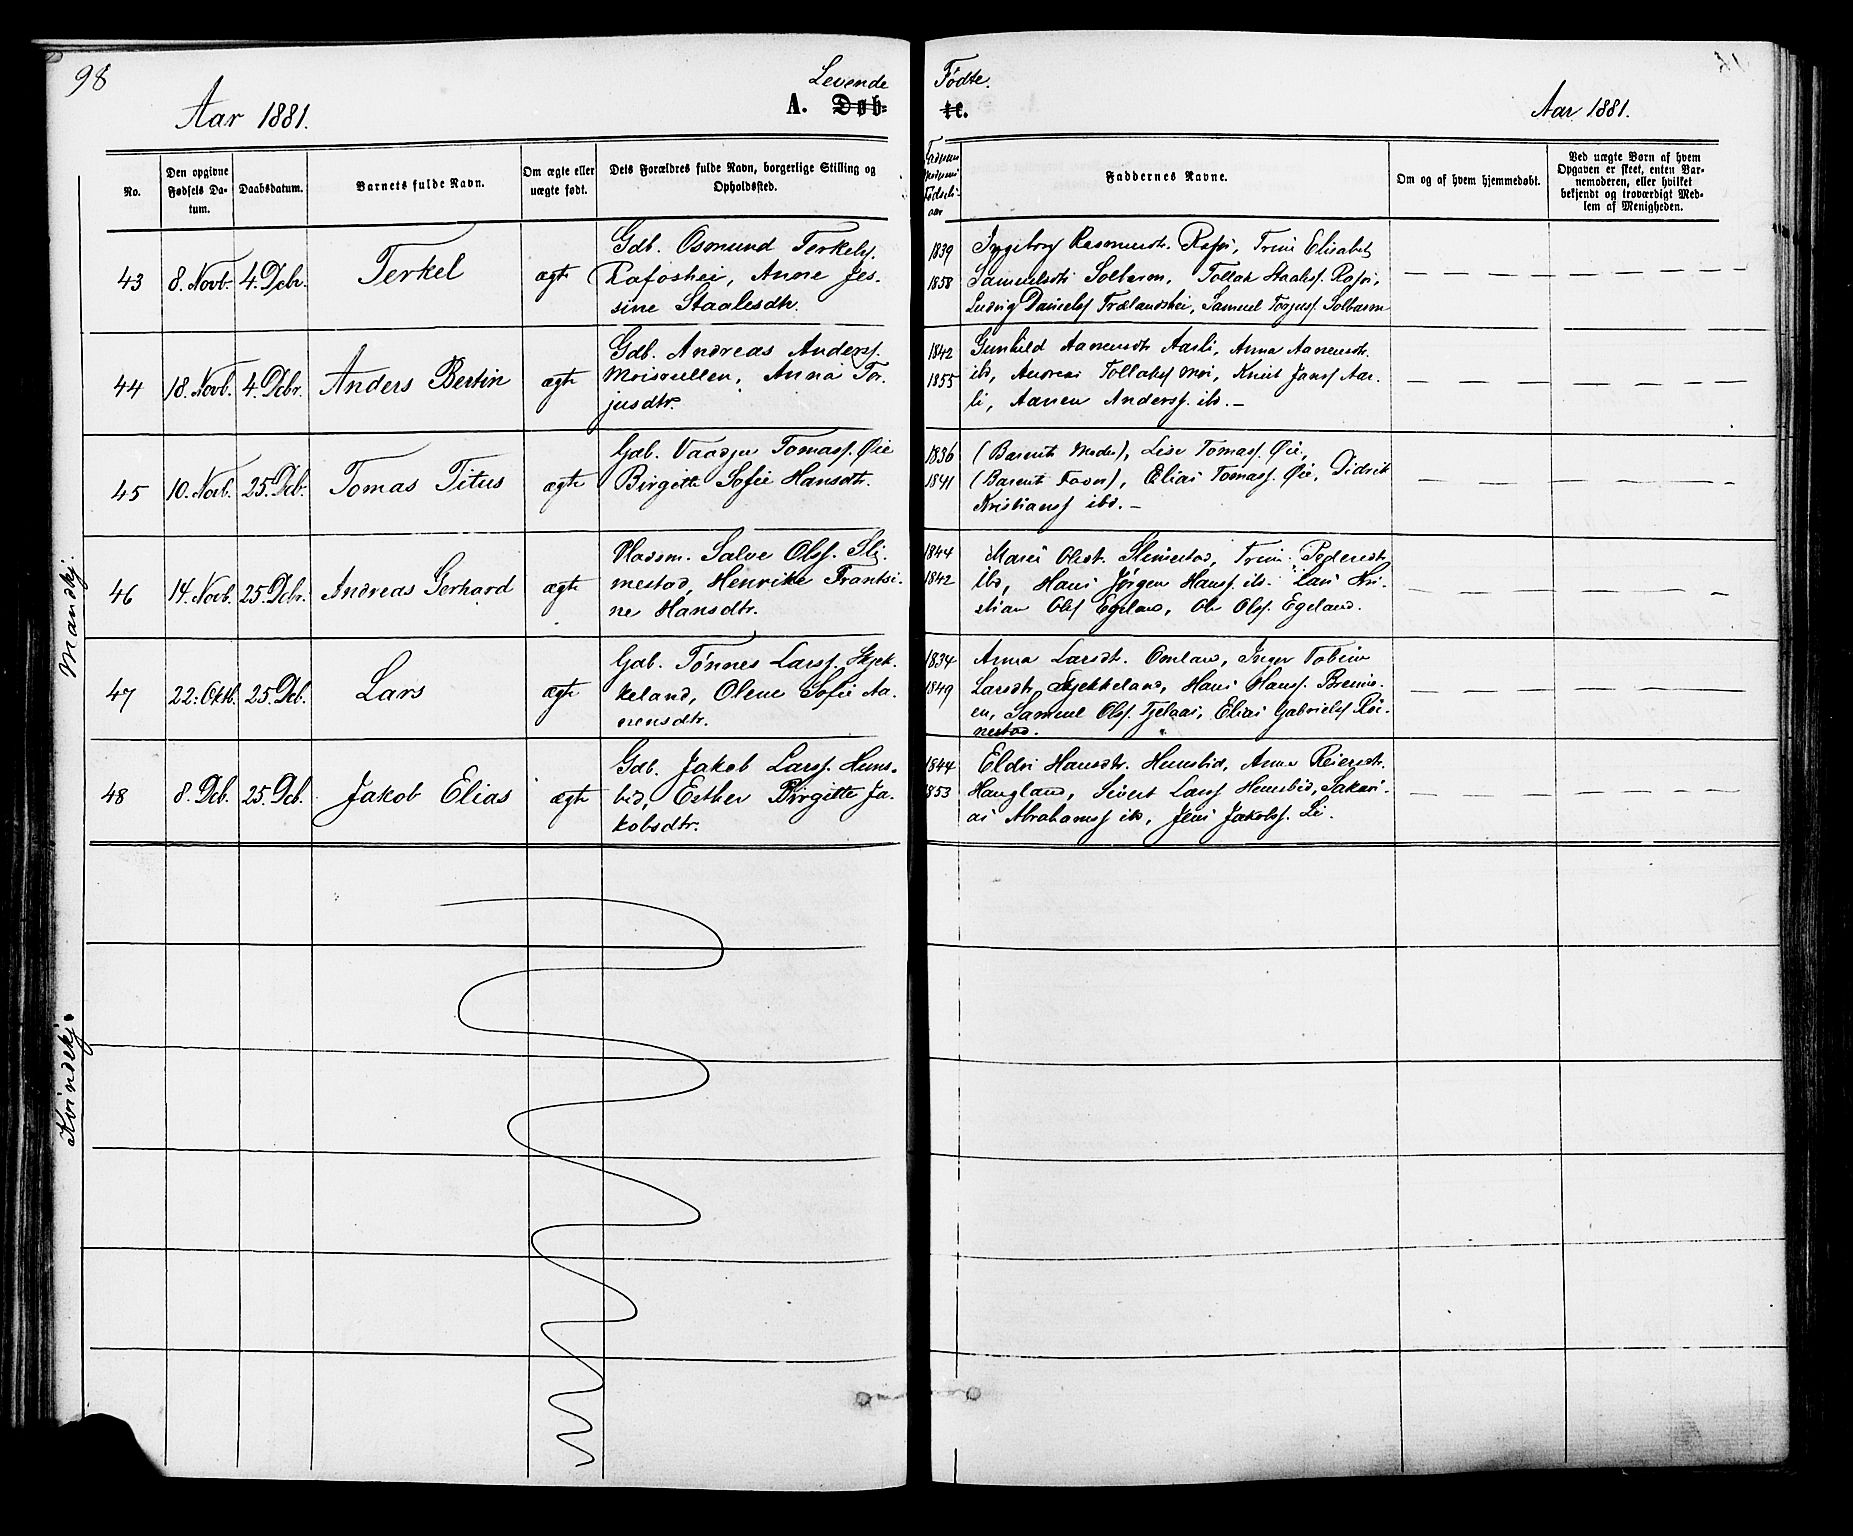 98
Levende Fødte.
Aar 1881.
A. Døb-
te.
Aar 1881.
No.
Den opgivne
Fødsels Da-
tum.
Daabsdatum.
Barnets fulde Navn.
Om ægte eller
uægte født.
Dets Forældres fulde Navn, borgerlige Stilling og
Opholdssted.
Fødsels-
aar
Faddernes Navne.
Om og af hvem hjemmedøbt.
Ved uægte Børn af hvem
Opgaven er skeet, enten Bar-
nemoderen, eller hvilket
bekjendt og troværdigt Med-
lem af Menigheden.
Mandkj.
43
8. Novb.
4. Dcbr.
Terkel
ægte
Gdb. Osmund Terkels.
Rafoshei, Anne Jes-
sine Staalesdtr.
1839
1858
Ingeborg Rasmusdtr. Rafos, Trine Elisabet
Samuelsdtr Solbærm, Tollak Staaless. Rafos,
Ludvig Daniels Trælandshei, Samuel Torjuss. Solbærm
44
18. Novb.
4. Dcbr.
Anders Bertin
ægte
Gdb. Andreas Anderss.
Moisvullen, Anna Tor-
jusdtr.
1842
1855
Gunhild Aanensdtr Aasli, Anna Aanensdtr.
ibd, Andreas Tollaks Moi, Knut Janss Aas-
li, Aanen Anderss. ibd. –
45
10. Novb.
25. Dcb.
Tomas Titus
ægte
Gdb. Vaadju Tomass. Øie
Birgitte Sofie Hansdtr.
1836
1841
(Barnets Moder), Lise Tomass. Øie,
(Barnets Fader), Elias Tomass. Øie, Didrik
Kristianss ibd. –
46
14. Novb.
25. Dcbr.
Andreas Gerhard
ægte
Pladsm. Salve Olss. Sli-
mestad, Henrikke Frantsi-
ne Hansdtr.
1844
1842
Maria Olsdtr. Slimestad, Trine Pedersdtr
ibd, Hans Jørgen Hanss. ibd. Lars Kri-
stian Ols Egeland, Ole Olss. Egeland.
47
22. Oktb.
25. Dcb.
Lars
ægte
Gdb. Tønnes Larss. Skjek-
keland, Olene Sofie Aa-
nensdtr.
1834
1849
Anna Larsdtr. Omland, Inger Tobine
Larsdtr Skjekkeland, Hans Hanss.
en, Samuel Olss. Fjelaas, Elias Gabriels Røi-
nestad.
48
8. Dcb.
25. Dcb.
Jakob Elias
ægte
Gdb. Jakob Larss. Hums-
bid, Esther Birgitte Ja-
kobsdtr.
1844
1853
Eldri Hansdtr. Humsbid, Anna Reiersdtr.
Haugland, Sivert Larss Humsbid, Sakari-
as Abrahamss ibd, Jens Jakobss. Li.
Kvindekj.